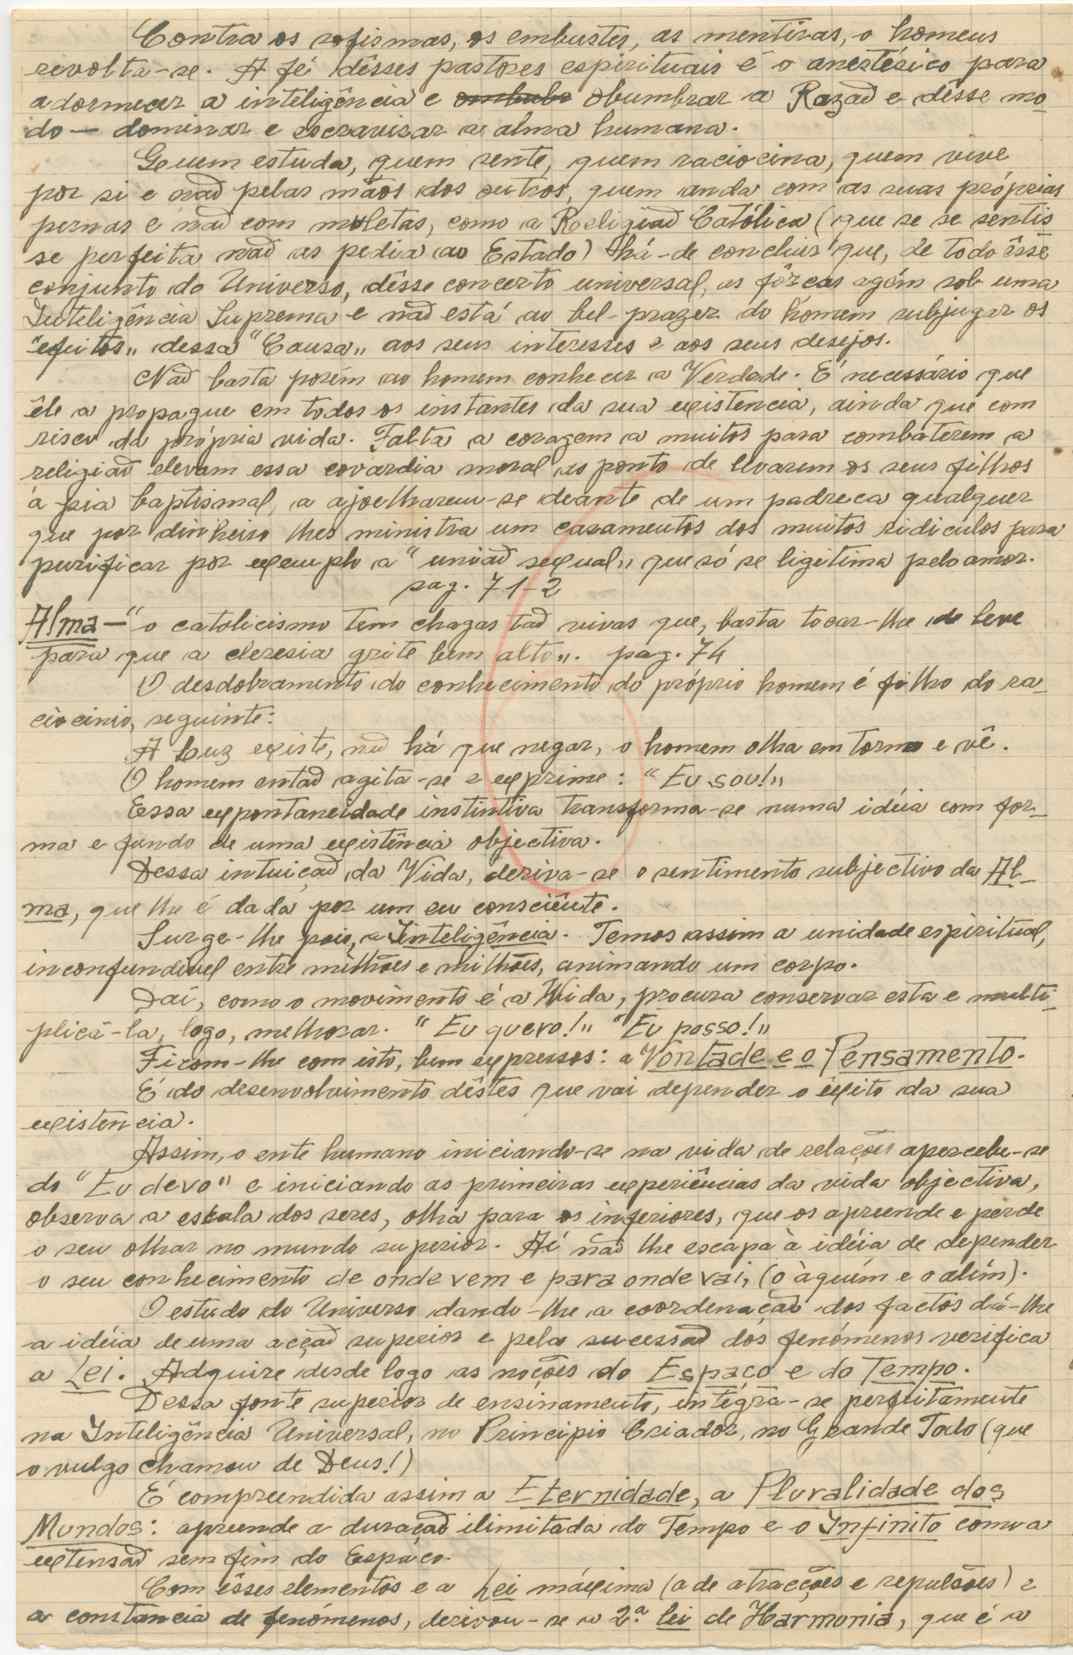 Contra os sofismas, os embustes, as mentiras, o homem
revolta-se. A fé dêsses pastores espirituais é o anestésico para
adormecer a inteligência e obumbrar a Razaõ e dêsse mo-
do — dominar e escravisar a alma humana.
Quem estuda, quem sente, quem raciocina, quem vive
por si e naõ pelas mãos dos outros, quem anda com as suas próprias
pernas e naõ com muletas, como a Religiaõ Católica (que se se sentis
se perfeita naõ as pedia ao Estado) há-de concluir que, de todo êsse
conjunto do Universo, dêsse concerto universal, as fôrças agem sob uma
Inteligência Suprema e naõ está ao bel-prazer do homem subjugar os
"efeitos" dessa "Causa" aos seus interesses e aos seus desejos.
Naõ basta porém ao homem conhecer a Verdade. É necessário que
êle a propague em todos os instantes da sua existencia, ainda que com
risco da própria vida. Falta a coragem a muitos para combaterem a
religiaõ elevam essa covardia moral ao ponto de levarem os seus filhos
á pia baptismal, a ajoelharem-se deante de um padreca qualquer
que por dinheiro lhes ministra um casamentos dos muitos ridiculos para
purificar por exemplo a "uniaõ sexual" que só se ligitima pelo amor.
pag. 71-2
Alma — "o catolicismo tem chagas taõ vivas que, basta tocar-lhe de leve
para que a cleresia grite bem alto". pag. 74
O desdobramento do conhecimento do próprio homem é filho do ra-
ciocinio, seguinte:
A Luz existe, naõ há que negar, o homem olha em torno e vê.
O homem entaõ agita-se e exprime: "Eu sou!"
Essa expontaneidade instintiva transforma-se numa idéia com for-
ma e fundo de uma existência objectiva.
Dessa intuiçaõ da Vida, deriva-se o sentimento subjectivo da Al-
ma, que lhe é dada por um eu consciênte.
Surge-lhe pois, a Inteligência. Temos assim a unidade espiritual,
inconfundivel entre milhões e milhões, animando um corpo.
Daí, como o movimento é a Vida, procura conservar esta e multi-
plicá-la, logo, melhorar. "Eu quero!" "Eu posso!"
Ficam-lhe com isto, bem expressos: a Vontade e o Pensamento.
É do desenvolvimento dêstes que vai depender o êxito da sua
existencia.
Assim, o ente humano iniciando-se na vida de relações apercebe-se
do "Eu devo" e iniciando as primeiras experiências da vida objectiva,
observa a escala dos seres, olha para os inferiores, que os apreende e perde
o seu olhar no mundo superior. Aí naõ lhe escapa à idéia de depender
o seu conhecimento de onde vem e para onde vai, (o àquém e o além).
O estudo do Universo dando-lhe a coordenaçaõ dos factos dá-lhe
a idéia de uma acçaõ superior e pela sucessaõ dos fenómenos verifica
a Lei. Adquire desde logo as noções do Espaço e do Tempo.
Dessa fonte superior de ensinamento, integra-se perfeitamente
na Inteligência Universal, no Principio Criador, no Grande Todo (que
o vulgo chamou de Deus!)
É compreendida assim a Eternidade, a Pluralidade dos
Mundos: apreende a duraçaõ ilimitada do Tempo e o Infinito como a
extensaõ sem fim do Espaço.
Com êsses elementos e a Lei máxima (a de atracções e repulsões) e
a constancia de fenómenos, derivou-se a 2.ª lei de Harmonia, que é a